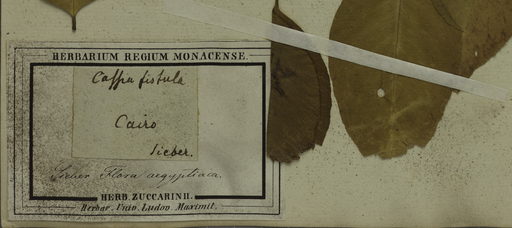 HERBARIUM REGIUM MONACENSE.
Cassia fistula
Cairo
Sieber.
Sieber Flora aegyptiaca.
HERB. ZUCCARINII.
Herbar. Univ. Ludov. Maximil.